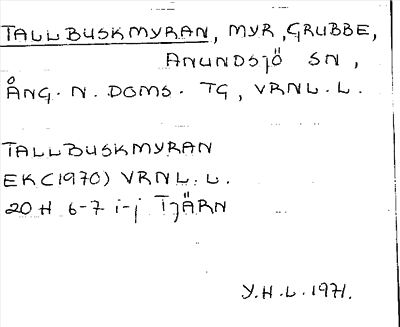 TALLBUSKMYRAN, MYR, GRUBBE,
ANUNDSJÖ SN,
ÅNG. N. DOMS. TG, VRNL. L.
TALLBUSKMYRAN
EK(1970) VRNL. L.
20 H 6-7 i-j TJÄRN
Y.H.L. 1971.